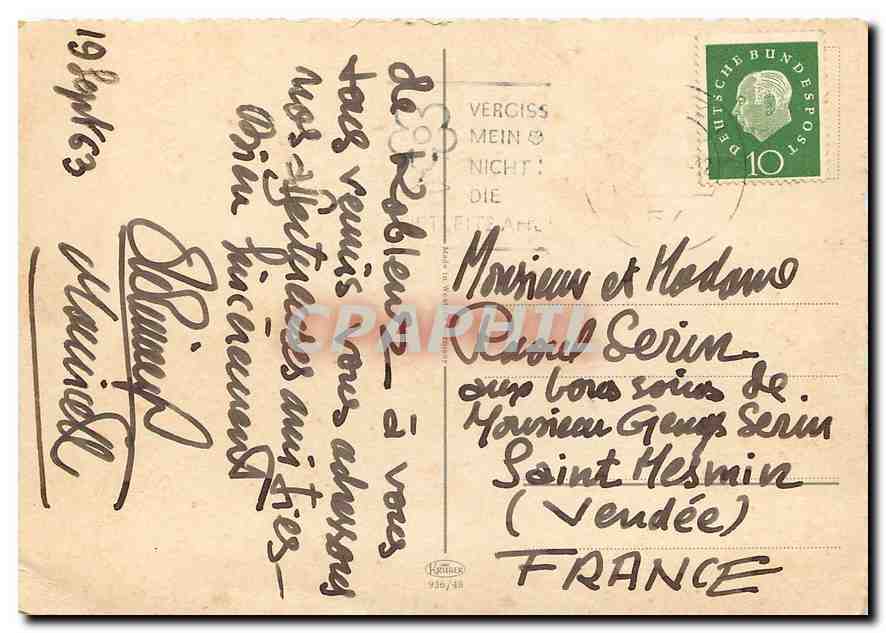 19 Sept 63
de Koblenz - à vous
tous réunis nous adressons
nos affectueuses amitiés -
Bien sincèrement
Mauricette
VERGISS
MEIN
NICHT
DIE
DEUTSCHE BUNDESPOST
10
Made in West
Monsieur et Madame
Raoul Serin
aux bons soins de
Monsieur Georges Serin
Saint Mesmin
(Vendée)
FRANCE
KRÜGER
936/48
CPAPHIL